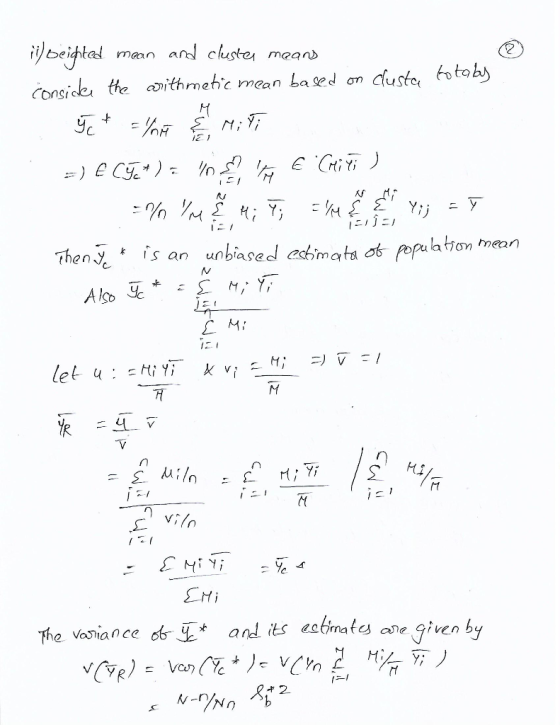 ②
ii) weighted mean and cluster means
consider the arithmetic mean based on cluster totals
ȳc* = 1/nM̄ Σ_{i=1}^{M} Mi Ȳi
=) E(ȳc*) = 1/n Σ_{i=1}^{n} 1/M̄ E (Mi ȳi)
= n/n 1/M Σ_{i=1}^{N} Mi Ȳi = 1/M Σ_{i=1}^{N} Σ_{j=1}^{Mi} Yij = Ȳ
Then ȳc* is an unbiased estimate of population mean
Also ȳc* = Σ_{i=1}^{N} Mi Ȳi / Σ_{i=1}^{n} Mi
Let u: = Mi Ȳi / M̄ & vi = Mi / M̄ =) v̄ = 1
ȳR = ū / v̄ v̄
= Σ_{i=1}^{n} ui/n / Σ_{i=1}^{n} vi/n = Σ_{i=1}^{n} Mi Ȳi / M̄ / Σ_{i=1}^{n} Mi/M̄
= Σ Mi Ȳi / ΣMi = ȳc*
The variance of ȳc* and its estimates are given by
v(ȳR) = Var (ȳc*) = V(1/n Σ_{i=1}^{n} Mi/M̄ ȳi)
= N-n/Nn Sb*2